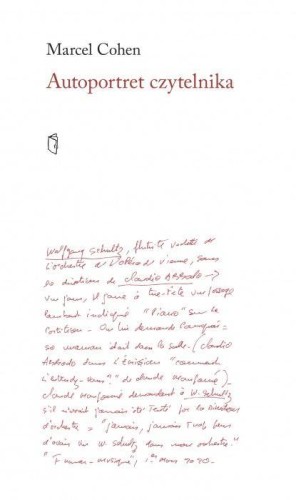 Marcel Cohen
Autoportret czytelnika
Wolfgang Schultz, flûtiste vedette de
l'orchestre de l'Opéra de Vienne, sous
la direction de Claudio Abbado →
un jour, il joue à tue-tête un passage
pourtant indiqué "Piano" sur la
partition. On lui demande pourquoi :
sa maman était dans la salle. (Claudio
Abbado dans l'émission "comment
l'entendez-vous ?" de Claude Maupomé).
Claude Maupomé demandant à W. Schultz
s'il n'avait jamais été tenté par la direction
d'orchestre : "jamais, jamais
W. Schultz dans mon orchestre."
"France-musique",